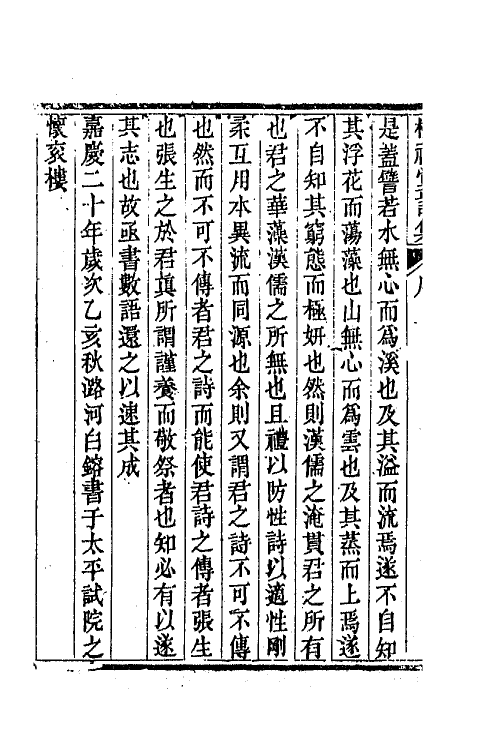 是蓋譬若水無心而爲溪也及其溢而流焉遂不自知
其浮花而蕩藻也山無心而爲雲也及其蒸而上焉遂
不自知其窮態而極妍也然則漢儒之淹貫君之所有
也君之華藻漢儒之所無也且禮以防性詩以適性剛
柔互用本異流而同源也余則又謂君之詩不可不傳
也然而不可不傳者君之詩而能使君詩之傳者張生
也張生之於君真所謂謹養而敬祭者也知必有以遂
其志也故亟書數語還之以速其成
嘉慶二十年歲次乙亥秋潞河白鎔書于太平試院之
懷衮樓